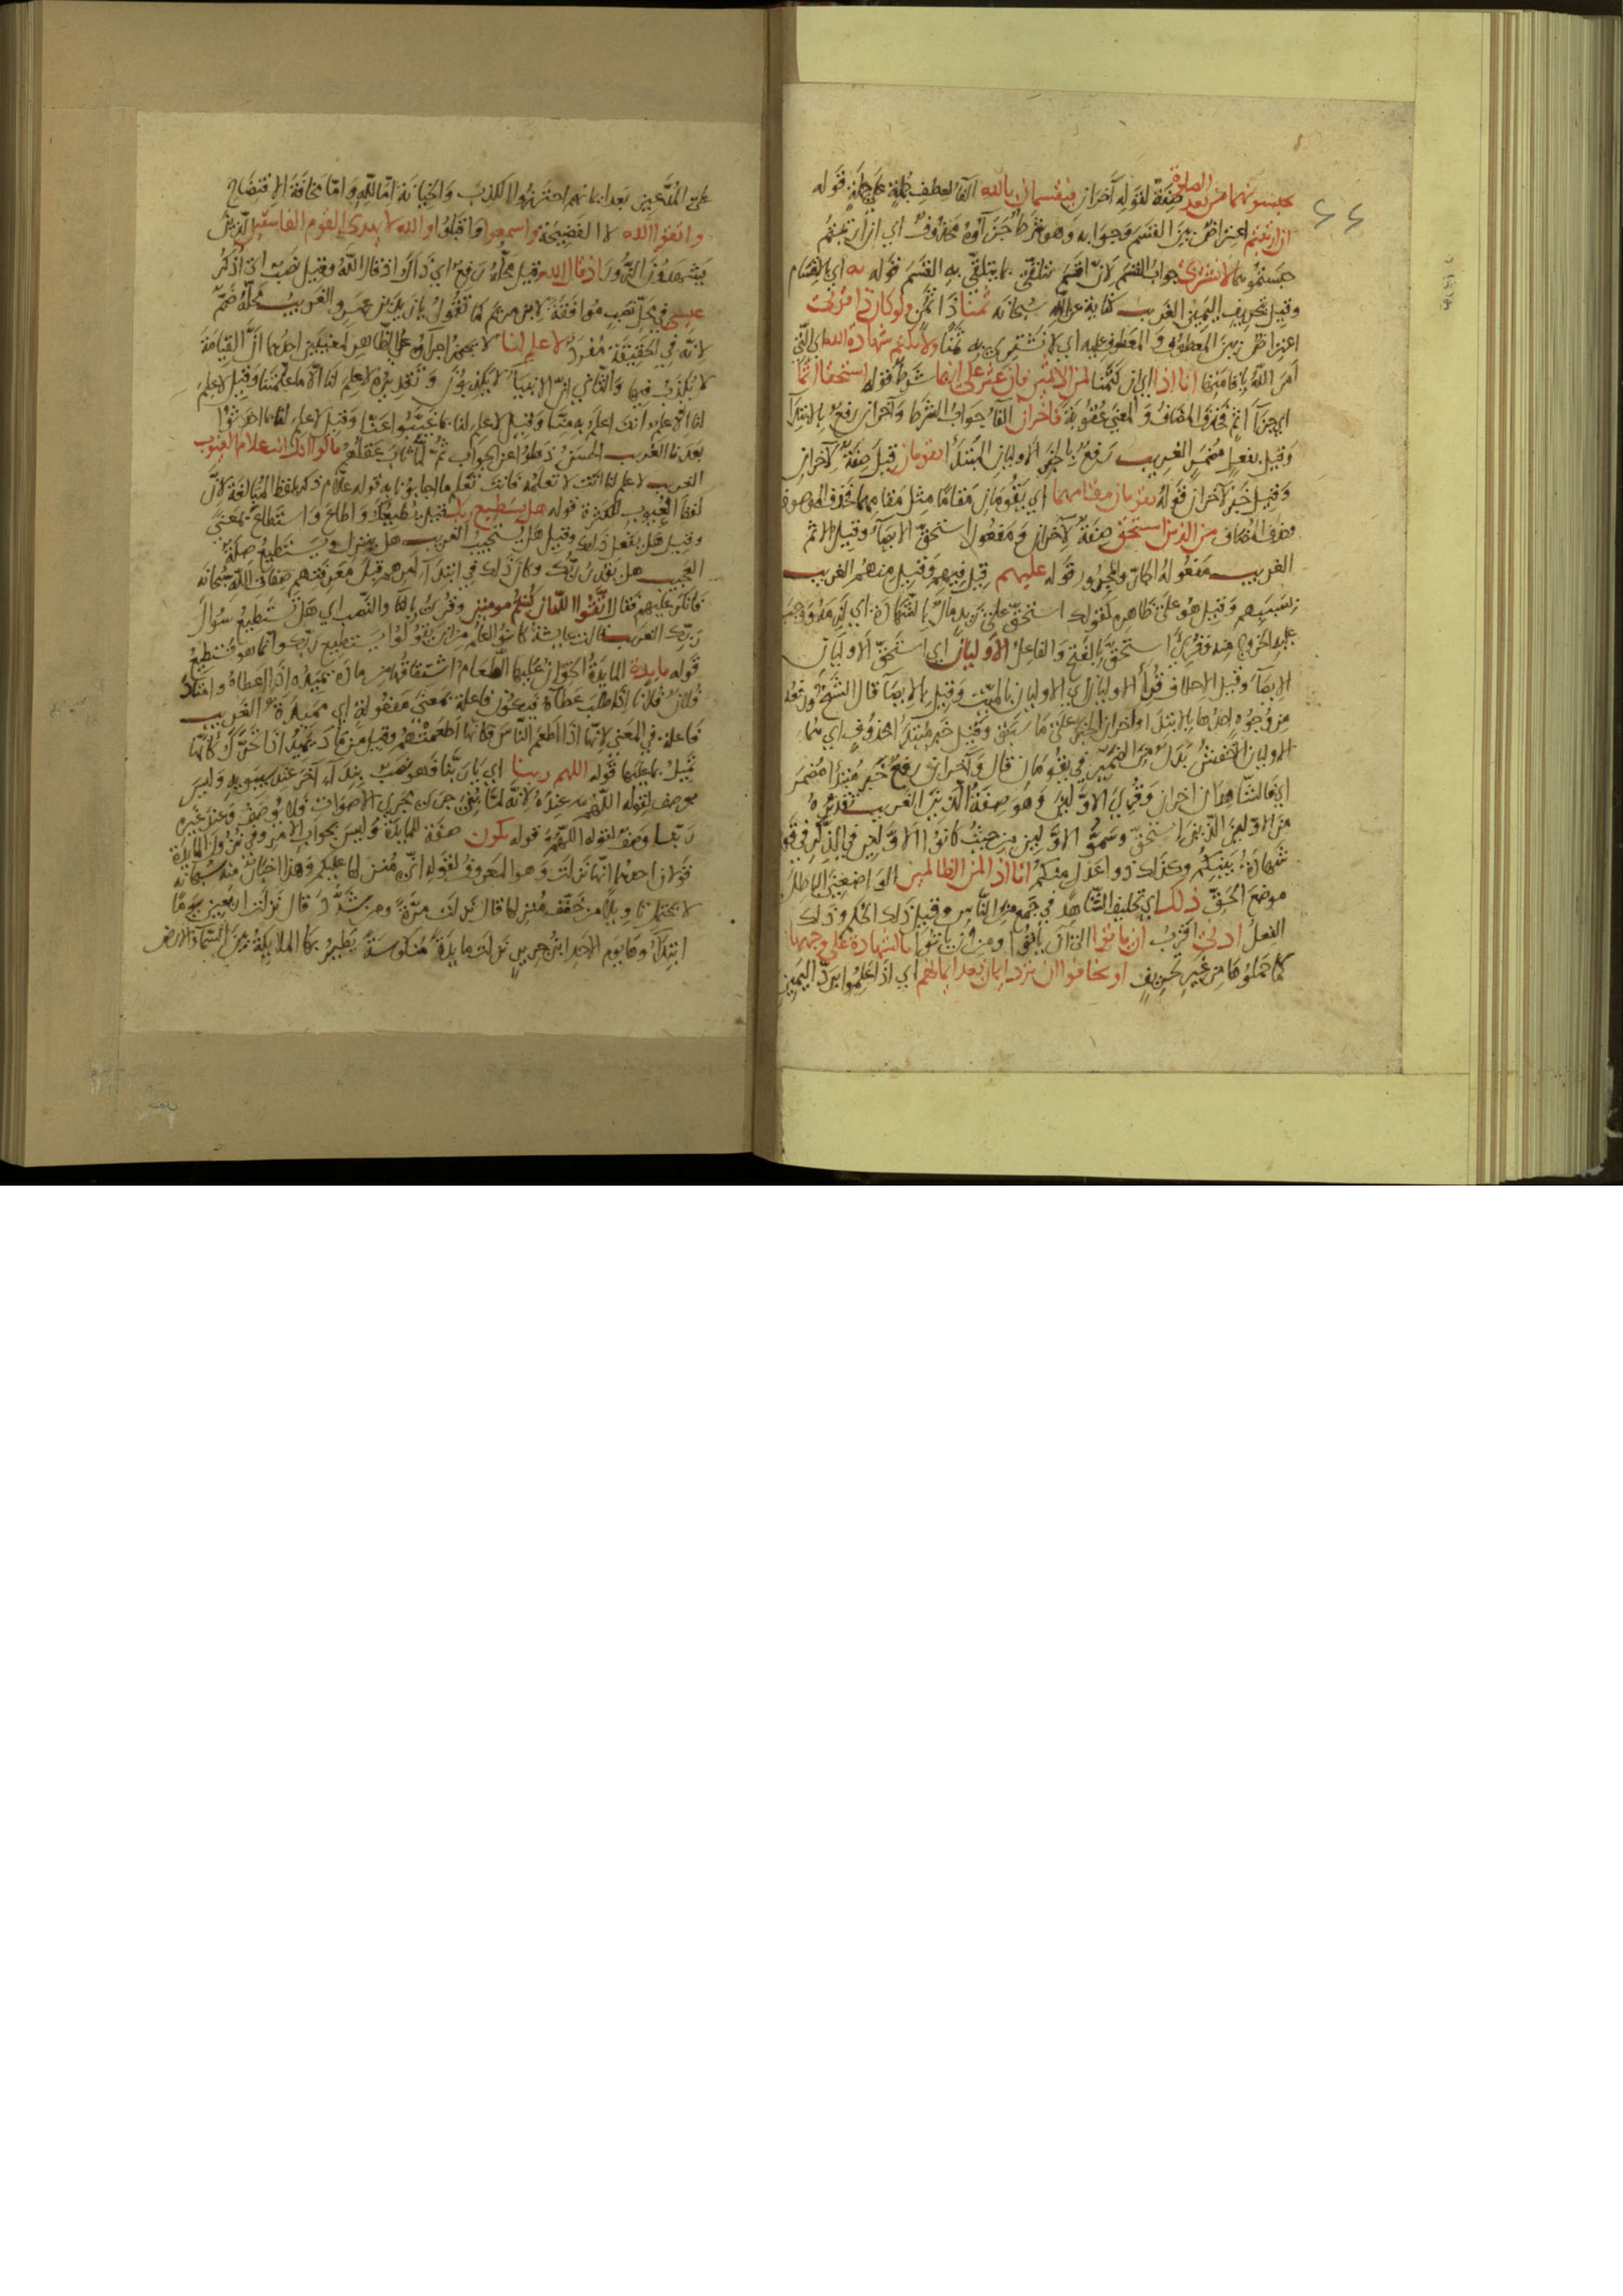 ٤٤
تحبسونهما من بعد الصلوة صفة لقوله آخران فيقسمان بالله الفاء لعطف جملة على جملة قوله
ان ارتبتم اعتراض بين القسم وجوابه وهو شرط جزاؤه محذوف اي ان ارتبتم
حبستموهما لا نشتري جواب القسم لان اقسم يتلقى بما يتلقى به القسم قوله به اي بالقسم
وقيل بتحريف اليمين الغريب كناية عن الله سبحانه ثمنا ذا ثمن ولو كان ذا قربى
اعتراض بين المعطوف والمعطوف عليه اي لا نشتري به ثمنا ولا نكتم شهادة الله اي التي
امر الله باقامتها انا اذا اي ان كتمنا لمن الاثمين فان عثر على انهما شرط قوله استحقا اثما
اي جزاء اثم فحذف المضاف والمعنى عقوبة فاخران الفاء جواب الشرط وآخران رفع بالابتداء
وقيل بفعل مضمر الغريب رفع بالخبر الاوليان المبتدأ يقومان قيل صفة لآخران
وقيل خبر لآخران قوله يقومان مقامهما اي يقومان مقاما مثل مقامهما فحذف الموصوف
وحذف المضاف من الذين استحق صفة لآخران ومفعول استحق الايصاء وقيل الاثم
الغريب مفعوله الجار والمجرور قوله عليهم قيل فيهم وقيل منهم الغريب
بسببهم وقيل هو على ظاهره كقولك استحق على زيد مال بالشهادة اي لزمه ووجب
عليه الخروج منه وقرئ استحق بالفتح والفاعل الاوليان اي استحق الاوليان
الايصاء وقيل الاحلاف قرأ الاوليان اي الاوليان بالميت وقيل بالايصاء قال الشيخ ورفعه
من وجوه احدها بالابتداء واخران الخبر على ما سبق وقيل خبر مبتدا محذوف اي هما
الاوليان الاخفش بدل من الضمير في يقومان قال وآخران رفع خبر مبتدا مضمر
اي فالشاهدان اخران وقرئ الاولين وهو صفة الذين الغريب تقديره
من الاولين الذين استحق وسموا الاولين من حيث كانوا الاولين في الذكر في قوله
شهادة بينكم وكذلك ذوا عدل منكم انا اذا لمن الظالمين الواضعين الباطل
موضع الحق ذلك اي تحليف الشاهد في جمع من الناس وقيل ذلك الحكم وذلك
الفعل ادنى اقرب ان ياتوا الى ان ياتوا ومن ان ياتوا بالشهادة على وجهها
كما حملوها من غير تحريف او يخافوا ان ترد ايمان بعد ايمانهم اي اذا علموا برد اليمين
على المدعين بعد ايمانهم احترزوا الكذب والخيانة اما لله واما مخافة الافتضاح
واتقوا الله لا الفضيحة واسمعوا واقبلوا والله لا يهدي القوم الفاسقين الذين
يشهدون الزور اذ قال الله قيل محله رفع اي ذاك اذ قال الله وقيل نصب اي اذكر
عيسى في محل نصب موافقة لابن مريم كما تقول يا زيد بن عمرو الغريب محله ضم
لانه في الحقيقة مفرد لا علم لنا لا يجوز اجراؤه على الظاهر لمعنيين احدهما ان القيامة
لا يكذب فيها والثاني ان الانبياء لا يكذبون وتقديره لا علم لنا الا ما علمتنا وقيل لا علم
لنا الا علم انت اعلم به منا وقيل لا علم لنا بما غيبوا عنا وقيل لا علم لنا بما احدثوا
بعدنا الغريب الحسن ذهلوا عن الجواب ثم لما ثاب عقلهم قالوا انك انت علام الغيوب
الغريب لا علم لنا انت لا تعلمه فانك تعلم ما اجابونا به قوله علام ذكر بلفظ المبالغة لان
لفظ الغيوب للكثرة قوله هل يستطيع ربك قيل يطيعك واطاع واستطاع بمعنى
وقيل هل يفعل ذلك وقيل هل يستجيب الغريب هل ينزل ويستطيع صلة
العجيب هل يقدر ربك وكان ذلك في ابتداء امرهم قبل معرفتهم صفات الله سبحانه
فانكر عليهم فقال اتقوا الله ان كنتم مومنين وقرئ بالتاء والنصب اي هل تستطيع سؤال
ربك الغريب قالت عايشة كانوا اعلم من ان يقولوا يستطيع ربك وانما هو تستطيع
قوله مايدة المايدة الخوان عليها الطعام اشتقاقها من ماده يميده اذا اعطاه وامتاد
فلان فلانا اذا طلب عطاءه فيكون فاعلة بمعنى مفعولة اي مميدة الغريب
فاعلة في المعنى لانها اذا اطعم الناس فكانها اطعمتهم وقيل من ماد يميد اذا تحرك كانها
تميل بما عليها قوله اللهم ربنا اي يا ربنا فهو نصب بنداء آخر عند سيبويه وليس
بوصف لقوله اللهم عنده لانه لما بني جرى مجرى الاصوات فلا يوصف وعند غيره
ربنا وصف لقوله اللهم قوله تكون صفة للمايدة وليس بجواب الامر وفي نزول المايدة
قولان احدهما انها نزلت وهو المعروف لقوله اني منزلها عليكم وهذا اخبار منه سبحانه
لا يحتمل تاويلا من خفف منزلها قال نزلت مرة ومن شدد قال نزلت اربعين يوما
ابتداؤها يوم الاحد ابن جرير نزلت مايدة منكوسة تطير بها الملايكة بين السماء والارض